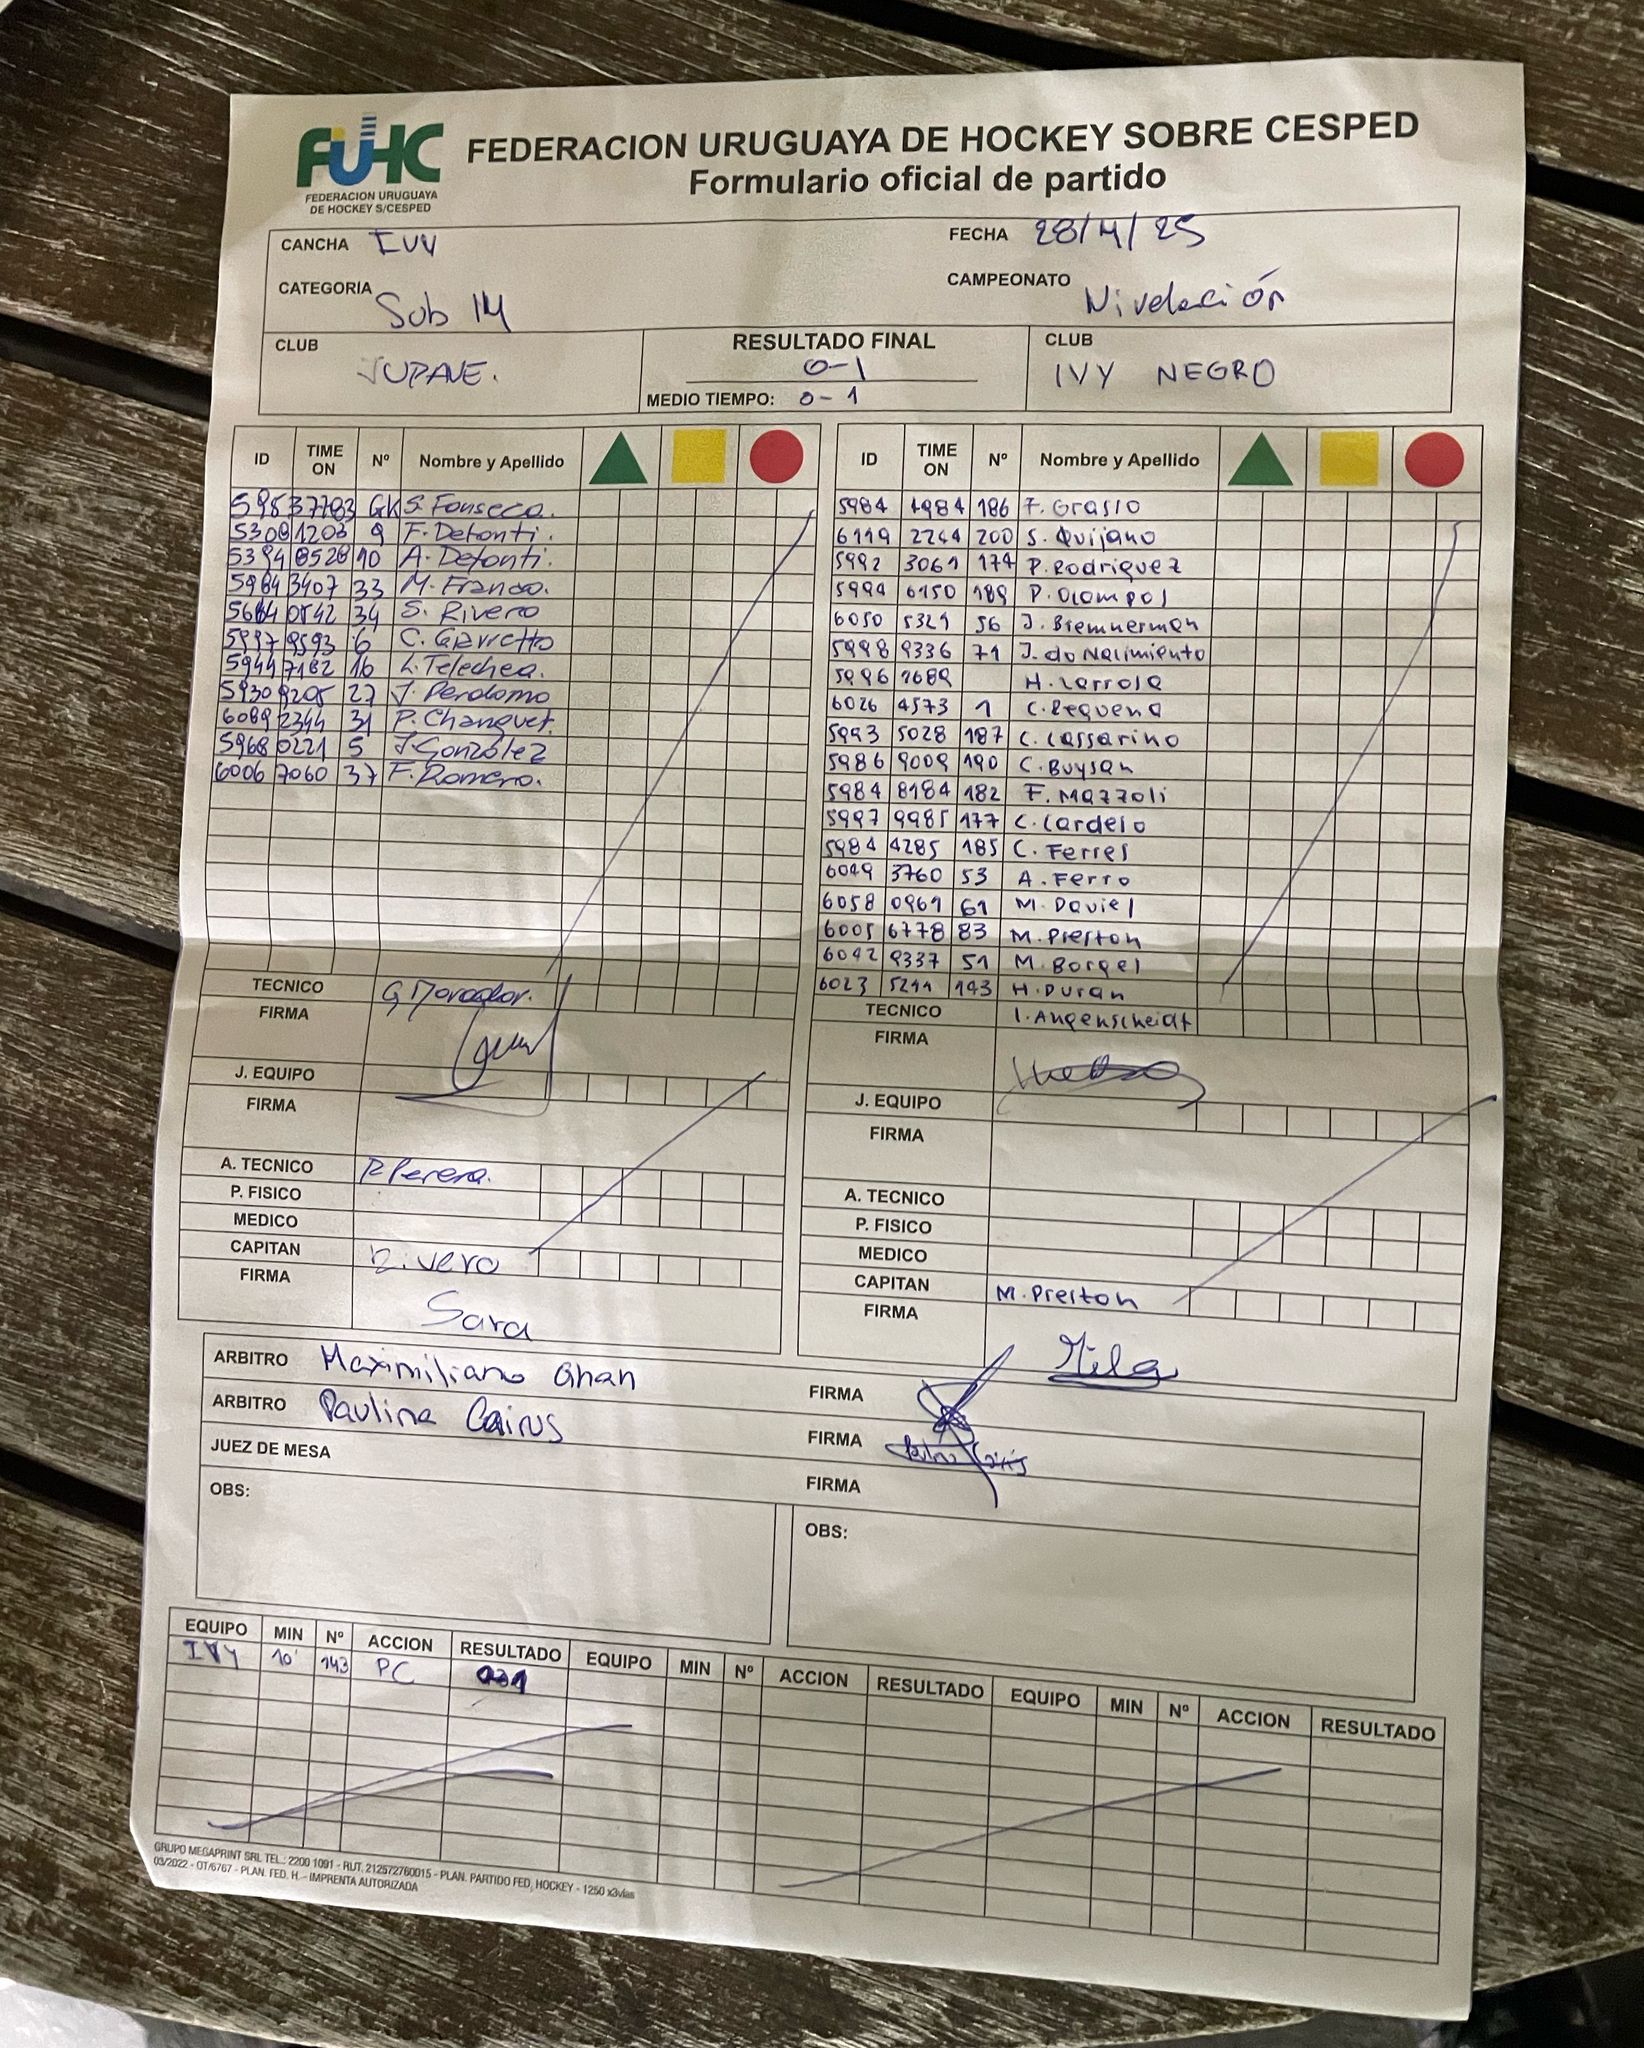 FUHC
FEDERACION URUGUAYA
DE HOCKEY S/CESPED
FEDERACION URUGUAYA DE HOCKEY SOBRE CESPED
Formulario oficial de partido
CANCHA IVY FECHA 28/4/25
CATEGORIA Sub 14 CAMPEONATO Nivelación
CLUB JUPAVE. RESULTADO FINAL 0-1 CLUB IVY NEGRO
MEDIO TIEMPO: 0-1
ID TIME ON Nº Nombre y Apellido
59537783 GK S. Fonseca.
5308 1203 9 F. Detonti.
5394 8528 10 A. Detonti.
5984 3407 33 M. Franco.
5664 0542 34 S. Rivero
5997 9593 6 C. Giarretto
5944 7182 16 L. Telechea.
5930 9205 27 J. Perdomo
6089 2344 31 P. Changuet.
5968 0221 5 J. González
6006 7060 37 F. Romero.
TECNICO
FIRMA
J. EQUIPO
FIRMA
A. TECNICO P. Perera.
P. FISICO
MEDICO
CAPITAN Rivero
FIRMA Sara
ID TIME ON Nº Nombre y Apellido
5984 4984 186 F. Grasso
6119 2244 200 S. Quijano
5992 3061 174 P. Rodriguez
5994 6150 189 P. Ocampos
6050 5321 56 J. Bremnerman
5998 9336 71 J. do Nacimiento
5996 7689 H. Larrola
6026 4573 1 C. Requena
5993 5028 187 C. Cassarino
5986 9009 190 C. Buysan
5984 8184 182 F. Mazzoli
5997 9985 177 C. Cardelo
5984 4285 185 C. Ferres
6049 3760 53 A. Ferro
6058 0961 61 M. Daviel
6005 6778 83 M. Preston
6042 9337 51 M. Borgel
6023 5244 143 H. Duran
TECNICO I. Angenscheidt
FIRMA
J. EQUIPO
FIRMA
A. TECNICO
P. FISICO
MEDICO
CAPITAN M. Preston
FIRMA Mila
ARBITRO Maximiliano Ghan FIRMA
ARBITRO Paulina Cairus FIRMA
JUEZ DE MESA FIRMA
OBS: OBS:
EQUIPO MIN Nº ACCION RESULTADO EQUIPO MIN Nº ACCION RESULTADO EQUIPO MIN Nº ACCION RESULTADO
IVY 10' 143 PC
GRUPO MEGAPRINT SRL TEL.: 2200 1091 - RUT. 212572760015 - PLAN. PARTIDO FED, HOCKEY - 1250 x3vias
03/2022 - OT/6767 - PLAN. FED. H. - IMPRENTA AUTORIZADA